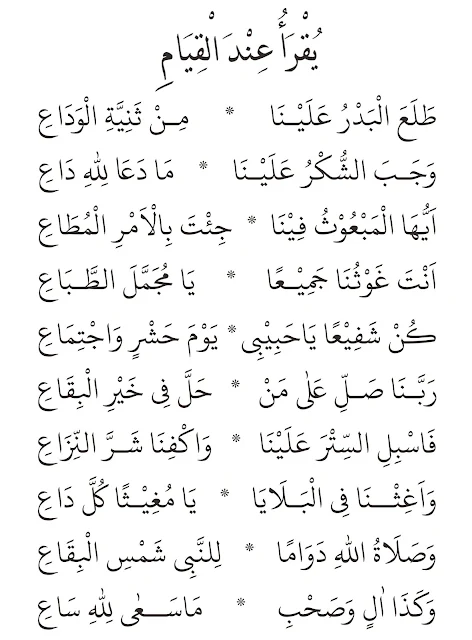 يُقْرَأُ عِنْدَ الْقِيَامِ
طَلَعَ الْبَدْرُ عَلَيْـنَا * مِـنْ ثَنِيَّةِ الْوَدَاعِ
وَجَـبَ الشُّكْرُ عَلَيْـنَا * مَا دَعَا لِلّٰهِ دَاعِ
اَيُّهَا الْمَبْعُوْثُ فِيْنَا * جِئْتَ بِالْاَمْرِ الْمُطَاعِ
اَنْتَ غَوْثُنَا جَمِيْـعًا * يَا مُجَمَّلَ الطَّـبَاعِ
كُنْ شَفِيْعًا يَاحَبِيْبِى * يَوْمَ حَشْرٍ وَاجْتِمَاعِ
رَبَّـنَا صَـلِّ عَلٰى مَنْ * حَلَّ فِى خَيْرِ الْبِقَاعِ
فَاسْبِلِ السِّتْرَ عَلَيْنَا * وَاكْفِنَا شَـرَّ النِّزَاعِ
وَاَغِثْـنَا فِى الْبَـلَايَا * يَا مُغِيْـثًا كُلَّ دَاعِ
وَصَلَاةُ اللّٰهِ دَوَامًا * لِلنَّبِى شَمْسِ الْبِقَاعِ
وَكَذَا اٰلٍ وَصَحْبٍ * مَاسَـعٰى لِلّٰهِ سَاعِ